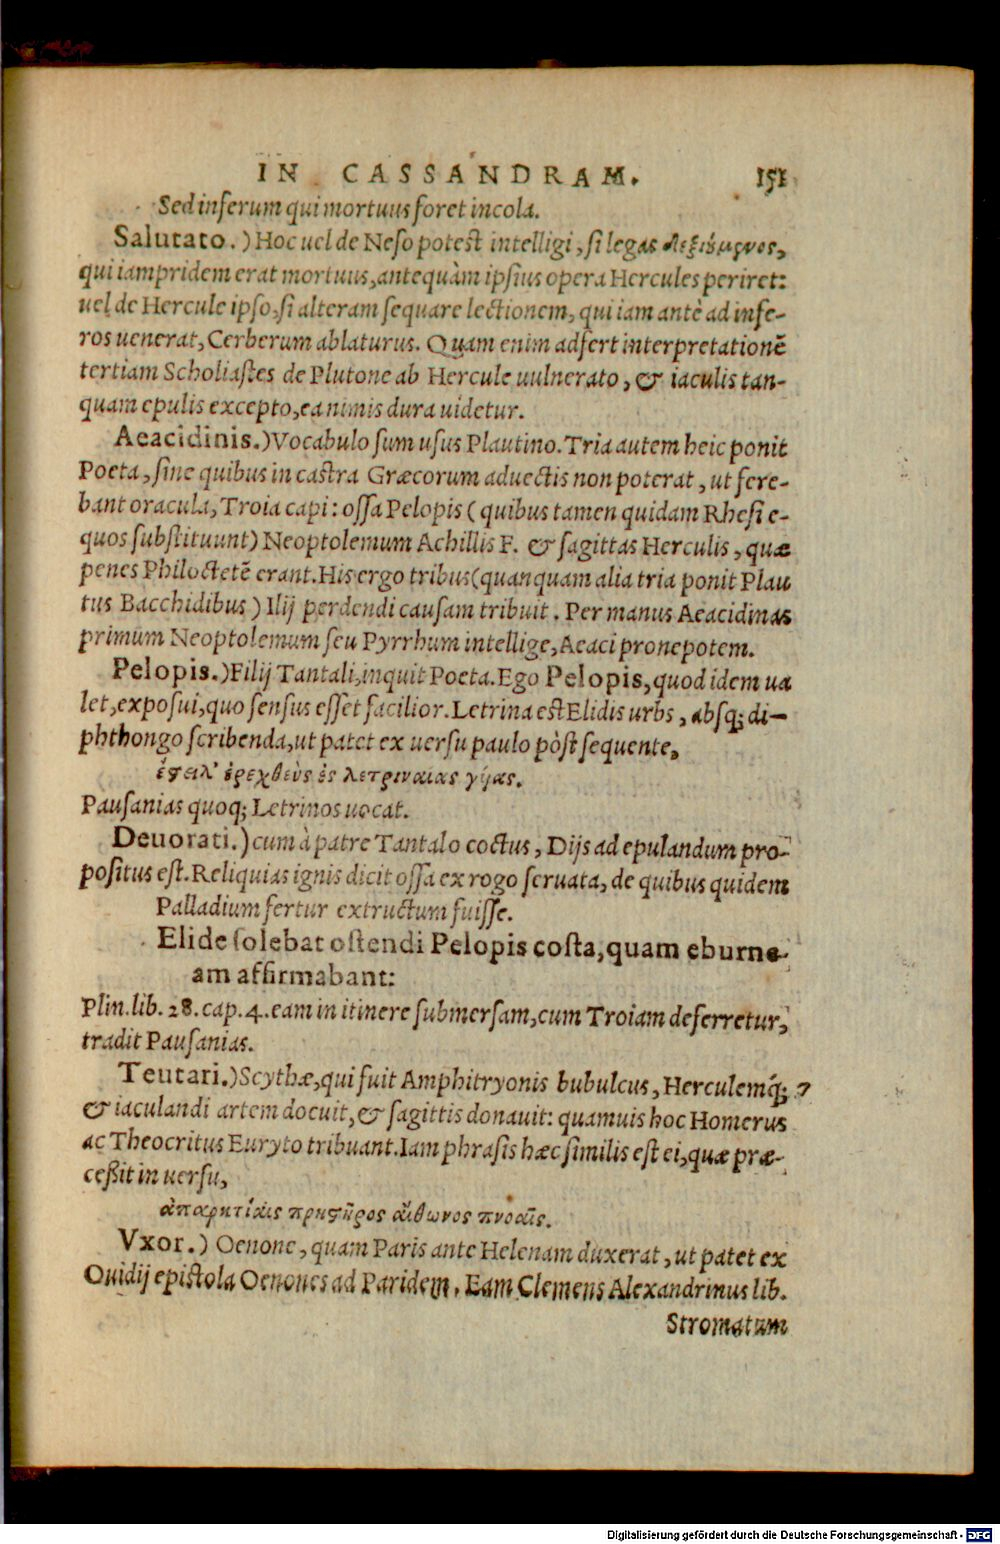 IN CASSANDRAM. 151
Sed inferum qui mortuus foret incola.
Salutato.) Hoc uel de Neso potest intelligi, si legas δεξιούμενος,
qui iampridem erat mortuus, antequàm ipsius opera Hercules periret:
uel de Hercule ipso, si alteram sequare lectionem, qui iam antè ad infe-
ros uenerat, Cerberum ablaturus. Quam enim adfert interpretationē
tertiam Scholiastes de Plutone ab Hercule uulnerato, & iaculis tan-
quam epulis excepto, ea nimis dura uidetur.
Aeacidinis.) Vocabulo sum usus Plautino. Tria autem heic ponit
Poeta, sine quibus in castra Græcorum aduectis non poterat, ut fere-
bant oracula, Troia capi: ossa Pelopis (quibus tamen quidam Rhesi e-
quos substituunt) Neoptolemum Achillis F. & sagittas Herculis, quæ
penes Philoctetē erant. His ergo tribus (quanquam alia tria ponit Plau
tus Bacchidibus) Ilij perdendi causam tribuit. Per manus Aeacidinas
primùm Neoptolemum seu Pyrrhum intellige, Aeaci pronepotem.
Pelopis.) Filij Tantali, inquit Poeta. Ego Pelopis, quod idem ua
let, exposui, quo sensus esset facilior. Letrina est Elidis urbs, absq; di-
phthongo scribenda, ut patet ex uersu paulo pòst sequente,
ἔστειλ' ἐρεχθεὺς ἐς λετριναίας γύας.
Pausanias quoq; Letrinos uocat.
Deuorati.) cum à patre Tantalo coctus, Dijs ad epulandum pro-
positus est. Reliquias ignis dicit ossa ex rogo seruata, de quibus quidem
Palladium fertur extructum fuisse.
Elide solebat ostendi Pelopis costa, quam eburne-
am affirmabant:
Plin. lib. 28. cap. 4. eam in itinere submersam, cum Troiam deferretur,
tradit Pausanias.
Teutari.) Scythæ, qui fuit Amphitryonis bubulcus, Herculemq́;
& iaculandi artem docuit, & sagittis donauit: quamuis hoc Homerus
ac Theocritus Euryto tribuant. Iam phrasis hæc similis est ei, quæ præ-
ceßit in uersu,
ἀπαρκτίαις πρηστῆρος αἴθωνος πνοαῖς.
Vxor.) Oenone, quam Paris ante Helenam duxerat, ut patet ex
Ouidij epistola Oenones ad Paridem. Eam Clemens Alexandrinus lib.
Stromatum
Digitalisierung gefördert durch die Deutsche Forschungsgemeinschaft - DFG